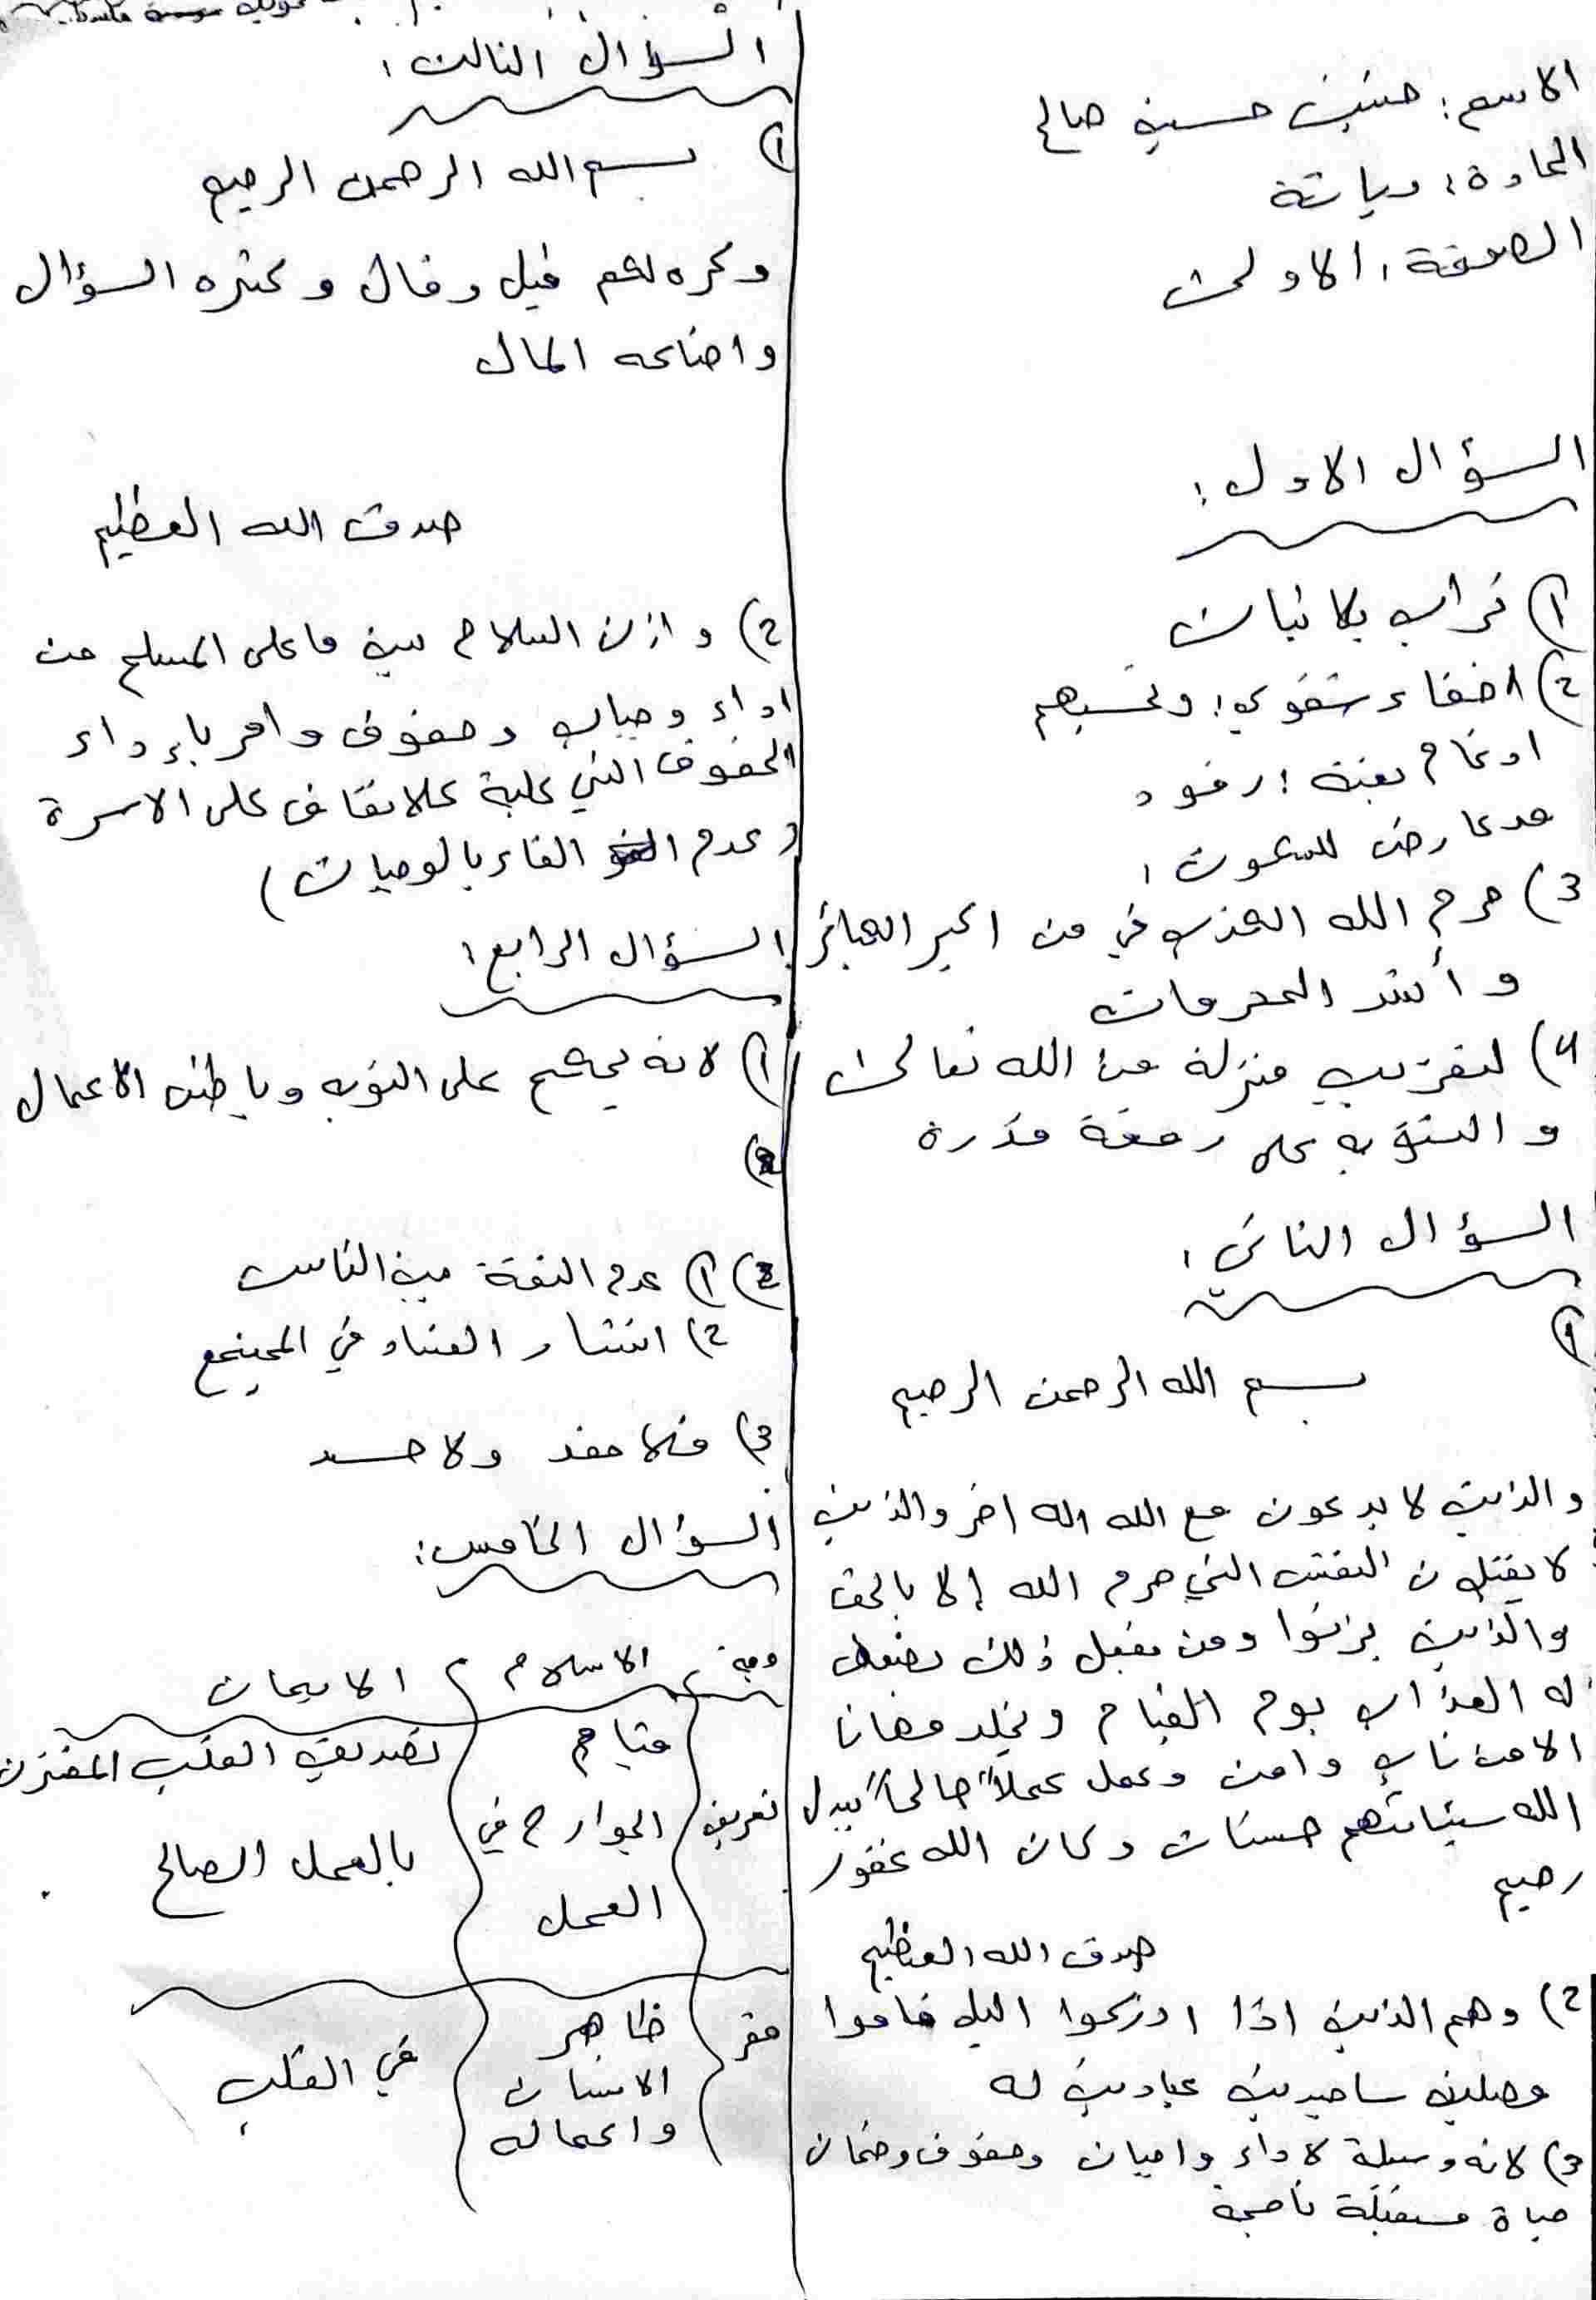 الاسم: حسين صالح
المادة: ديانة
الصفحة: الاولى
السؤال الاول:
1)
2) اخفاء شفوي:
ادغام بغنة:
مد عارض للسكون:
3) حرم الله الكذب في من اكبر الكبائر
و أشد المحرمات
4) لتقريب منزلة من الله تعالى
و التنويه على رفعة قدره
السؤال الثاني:
1)
بسم الله الرحمن الرحيم
والذين لا يدعون مع الله اله اخر والذين
لا يقتلون النفس التي حرم الله إلا بالحق
والذين يزنوا ومن يفعل ذلك يضعف
له العذاب يوم القيام ويخلد مهانا
الا من تاب وامن وعمل عملاً صالحاً يبدل
الله سيئاتهم حسنات وكان الله غفور
رحيم
صدق الله العظيم
2) وهم الذين اذا ادركوا الليل قاموا
مصلين ساجدين عبادين له
3) لانه وسيلة لاداء واجبات وحقوق وضمان
حياة مستقبلة ناجحة
السؤال الثالث:
1) بسم الله الرحمن الرحيم
وكره لكم قيل وقال وكثره السؤال
واضاعه المال
صدق الله العظيم
2) وازن السلام بين ما على المسلم من
اداء وجباب وحقوق وامر بإداء
الحقوق التي علية كلانفاق على الاسرة
(عدم القاء بالوصيات)
السؤال الرابع:
1) لانه يحكم على النوبه وباطن الاعمال
2)
2) 1) عدم الثقة بين الناس
2) انتشار الفساد في المجتمع
3) فلا حقد ولا حسد
السؤال الخامس:
وجه الاسلام الايمان
تعريف قيام الجوارح في العمل تصديق القلب المقترن بالعمل الصالح
مقر ظاهر الانسان واعماله في القلب